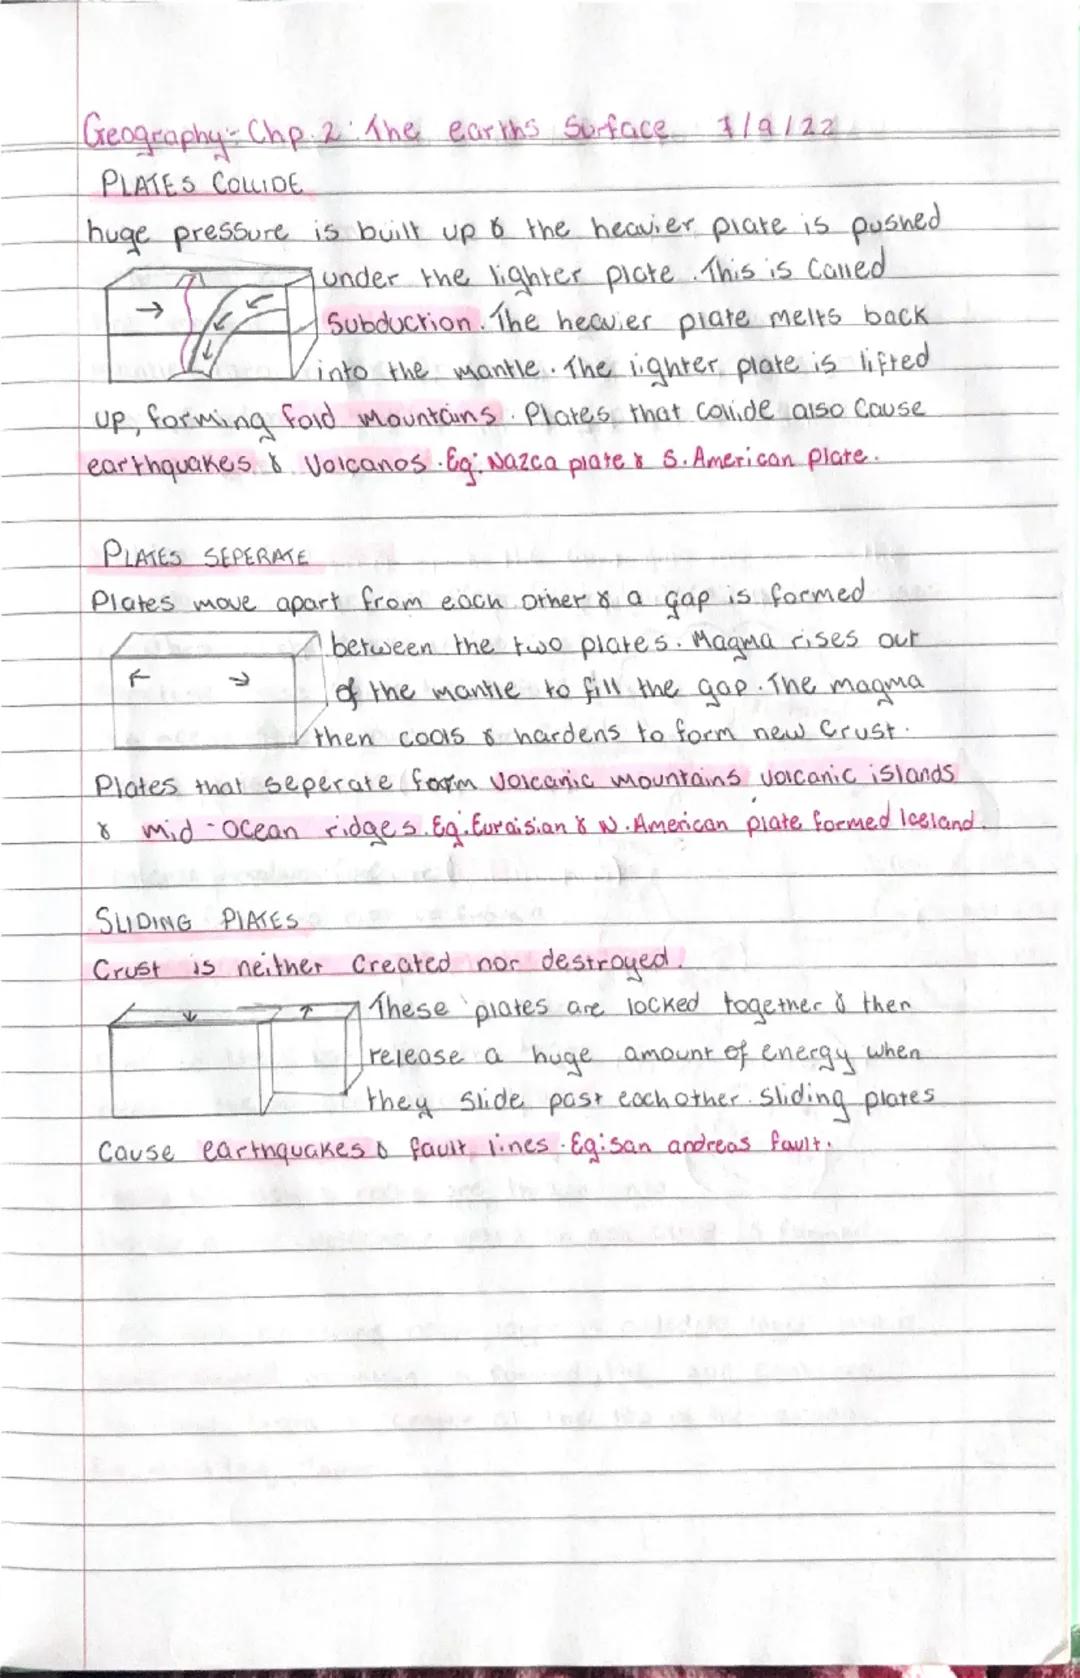 Geography:- Chp. 2: The earths Surface 7/9/22
PLATES COLLIDE
huge pressure is built up & the heavier plate is pushed
under the lighter plate. This is called
Subduction. The heavier plate melts back
into the mantle. The lighter plate is lifted
up, forming fold mountains. Plates that collide also cause
earthquakes & Volcanos. Eg: Nazca plate & S. American plate.
PLATES SEPERATE
Plates move apart from each other & a gap is formed
between the two plates. Magma rises out
of the mantle to fill the gap. The magma
then cools & hardens to form new Crust.
Plates that seperate form volcanic mountains volcanic islands
& mid-ocean ridges. Eg: Euraisian & N. American plate formed Iceland.
SLIDING PLATES
Crust is neither created nor destroyed.
These plates are locked together & then
release a huge amount of energy when
they slide past eachother. Sliding plates
Cause earthquakes & fault lines. Eg: san andreas fault.